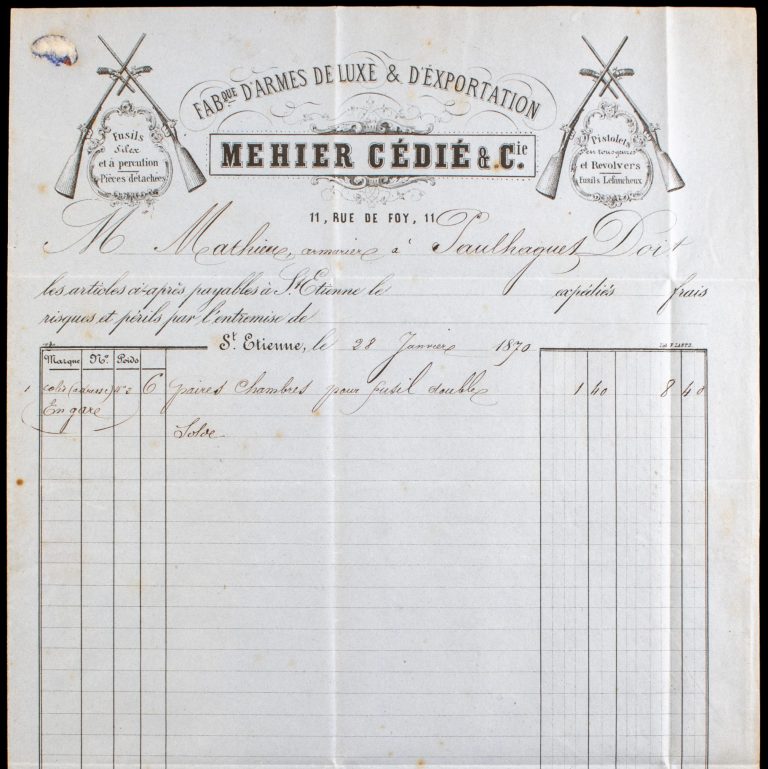 FABque D'ARMES DE LUXE & D'EXPORTATION
Fusils
Silex
et à percution
Pièces détachées
MEHIER CÉDIÉ & C.ie
Pistolets
en tous genres
et Revolvers
fusils Lefaucheux
11, RUE DE FOY, 11
Mr Mathieu, armurier à Paulhaguet Doit
les articles ci-après payables à St Etienne le expédiés frais
risques et périls par l'entremise de
St. Etienne, le 28 Janvier 1870
Marque No. Poids
1 colis (adresse) 6 paires chambres pour fusil double 1 40 8 40
En gare
Solde